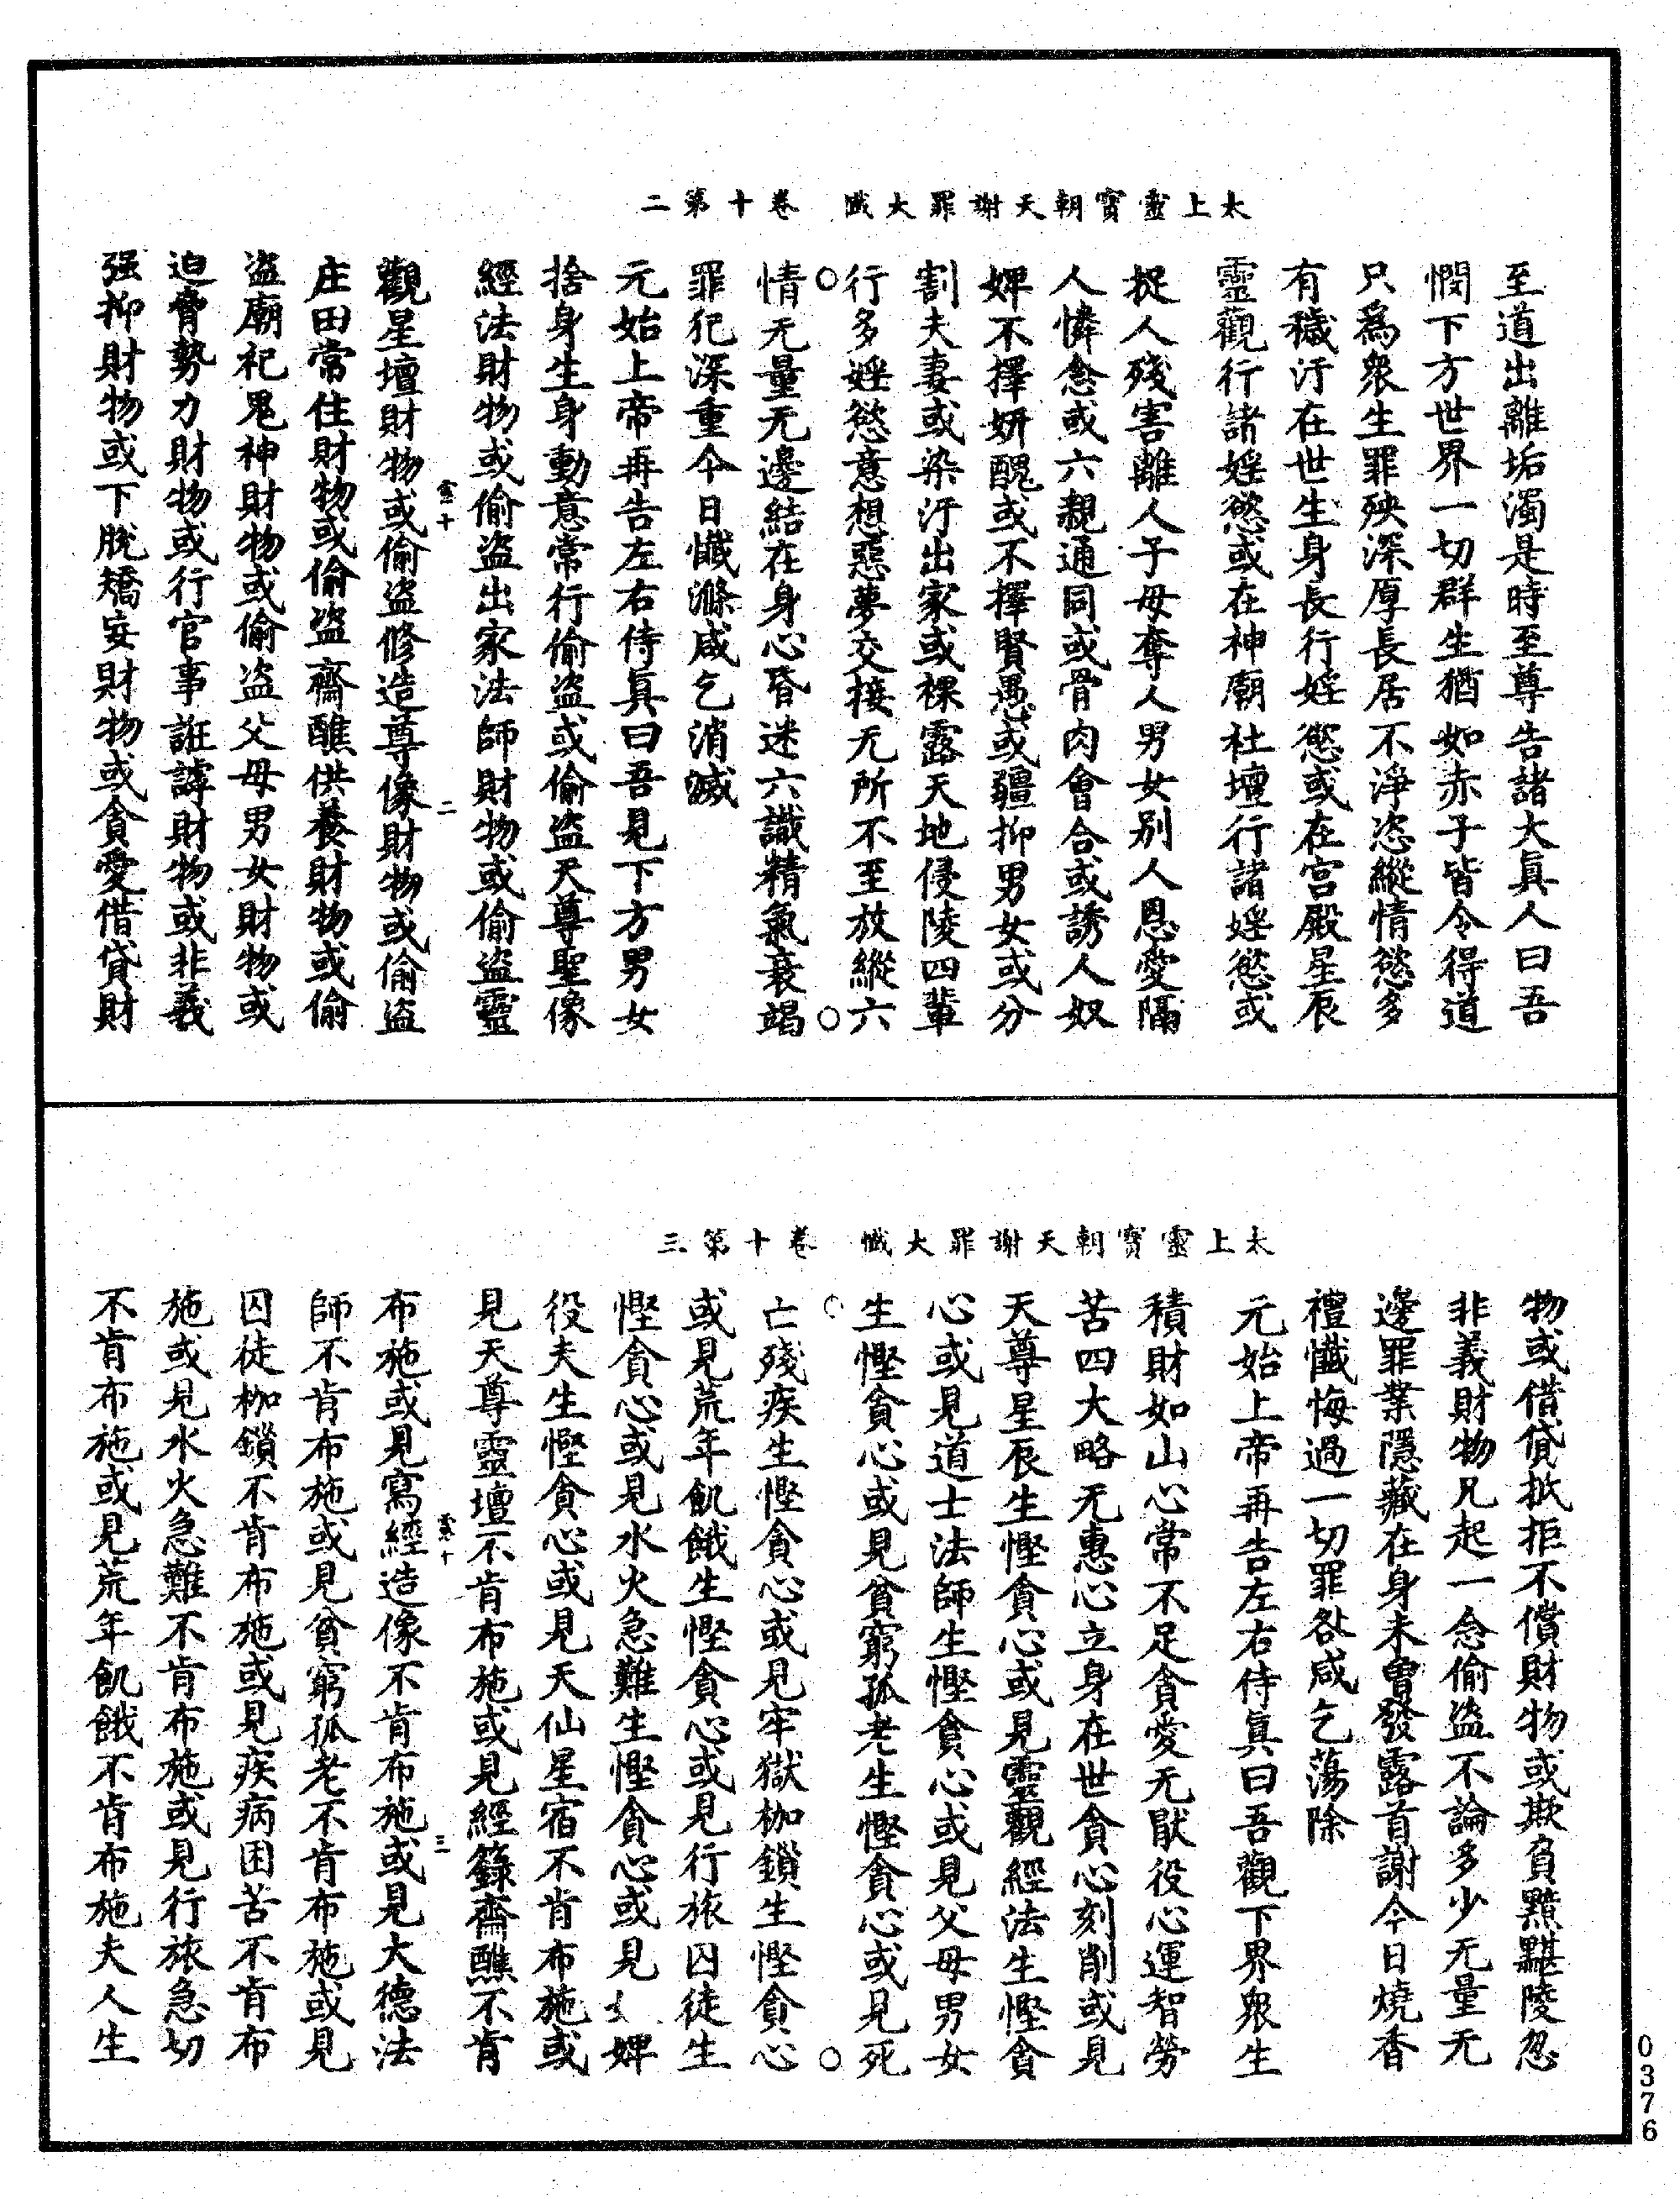 太上靈寶朝天謝罪大懺　卷十第二
至道出離垢濁是時至尊告諸大真人曰吾
憫下方世界一切群生猶如赤子皆令得道
只為衆生罪殃深厚長居不淨恣縱情慾多
有穢汙在世生身長行婬慾或在宮殿星辰
靈觀行諸婬慾或在神廟社壇行諸婬慾或
捉人殘害離人子母奪人男女別人恩愛隔
人憐念或六親通同或骨肉會合或誘人奴
婢不擇妍醜或不擇賢愚或彊抑男女或分
割夫妻或染汙出家或裸露天地侵陵四輩
行多婬慾意想惡夢交接无所不至放縱六
情无量无邊結在身心昏迷六識精氣衰竭
罪犯深重今日懺滌咸乞消滅
元始上帝再告左右侍真曰吾見下方男女
捨身生身動意常行偷盜或偷盜天尊聖像
經法財物或偷盜出家法師財物或偷盜靈
靈十　二
觀星壇財物或偷盜修造尊像財物或偷盜
庄田常住財物或偷盜齋醮供養財物或偷
盜廟祀鬼神財物或偷盜父母男女財物或
迫脅勢力財物或行官事誑謼財物或非義
强抑財物或下脫矯妄財物或貪愛借貸財
太上靈寶朝天謝罪大懺　卷十第三
物或借貸扺拒不償財物或欺負黷黮陵忽
非義財物兄起一念偷盜不論多少无量无
邊罪業隱藏在身未曾發露首謝今日燒香
禮懺悔過一切罪咎咸乞蕩除
元始上帝再告左右侍真曰吾觀下界衆生
積財如山心常不足貪愛无猒役心運智勞
苦四大略无惠心立身在世貪心刻削或見
天尊星辰生慳貪心或見靈觀經法生慳貪
心或見道士法師生慳貪心或見父母男女
生慳貪心或見貧窮孤老生慳貪心或見死
亡殘疾生慳貪心或見牢獄枷鎖生慳貪心
或見荒年飢餓生慳貪心或見行旅囚徒生
慳貪心或見水火急難生慳貪心或見婢
役夫生慳貪心或見天仙星宿不肯布施或
見天尊靈壇不肯布施或見經籙齋醮不肯
靈十　三
布施或見寫經造像不肯布施或見大德法
師不肯布施或見貧窮孤老不肯布施或見
囚徒枷鎖不肯布施或見疾病困苦不肯布
施或見水火急難不肯布施或見行旅急切
不肯布施或見荒年飢餓不肯布施夫人生
0376